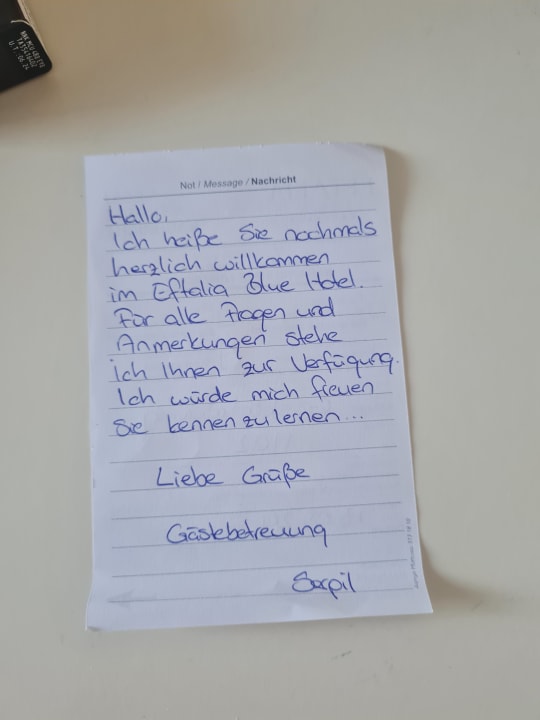 Not / Message / Nachricht
Hallo,
Ich heiße Sie nochmals
herzlich willkommen
im Eftalia Blue Hotel.
Für alle Fragen und
Anmerkungen stehe
ich Ihnen zur Verfügung.
Ich würde mich freuen
Sie kennen zu lernen...
Liebe Grüße
Gästebetreuung
Serpil